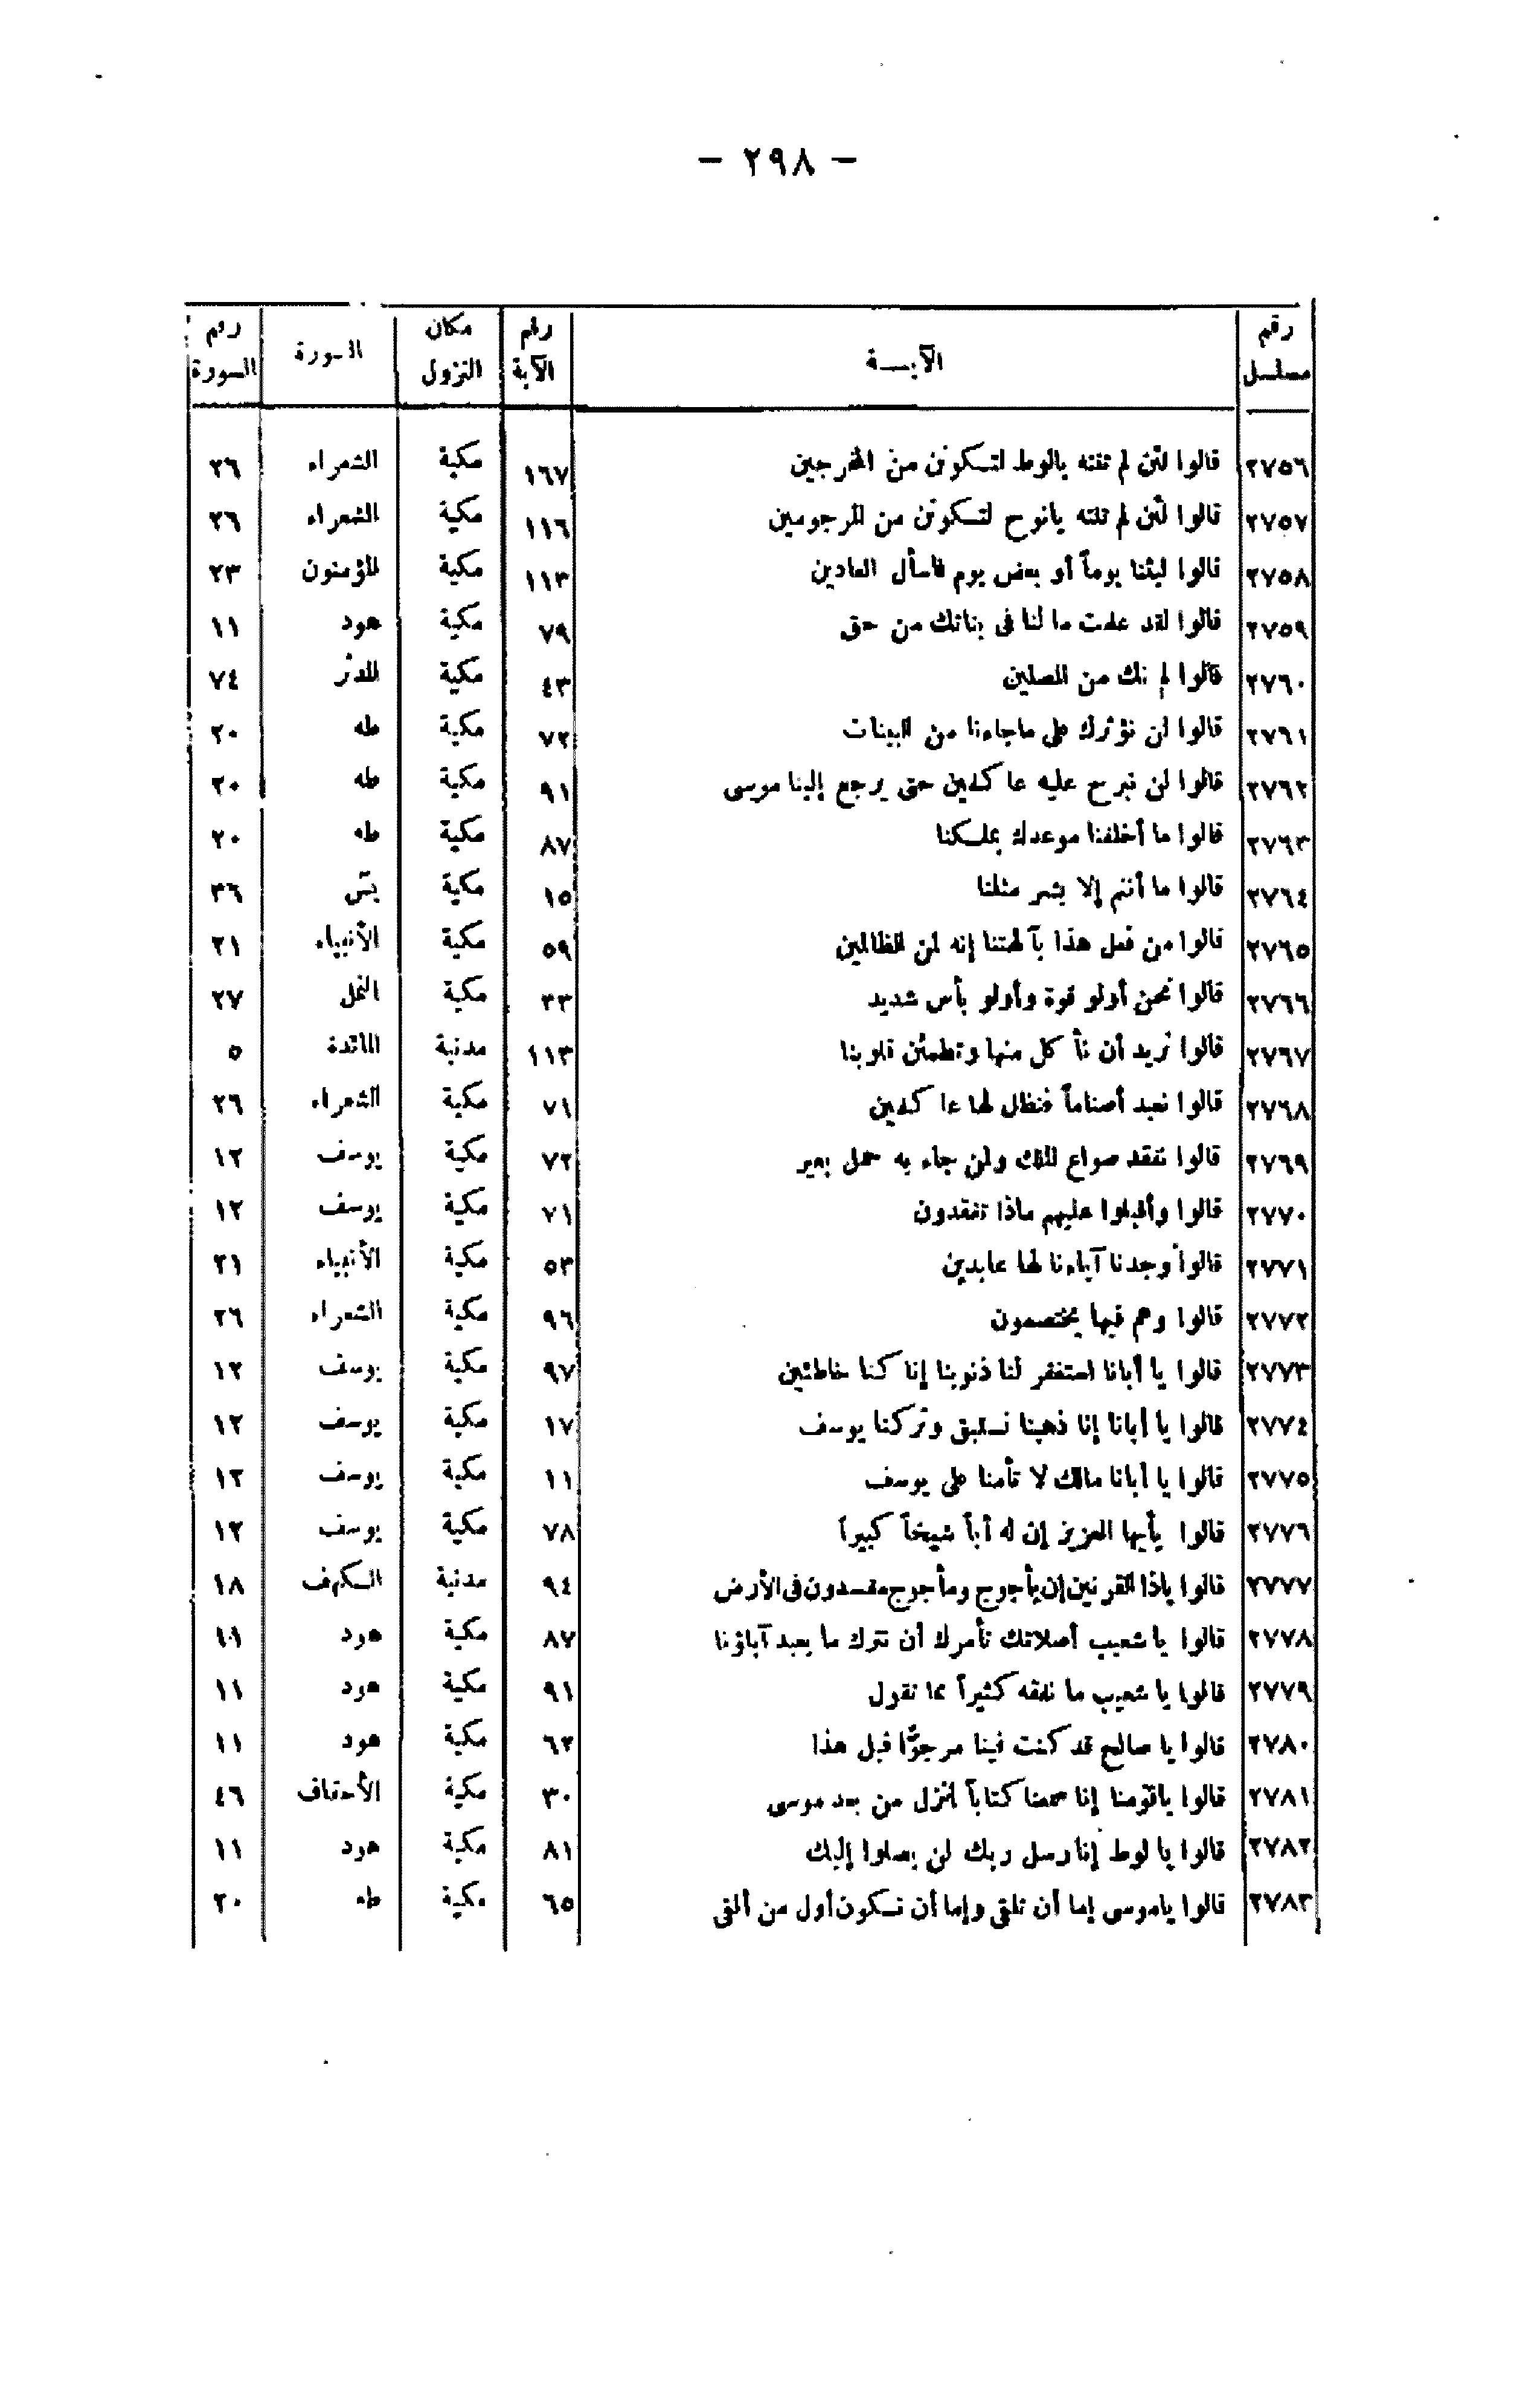 — ٢٩٨ —
رقم مسلسل الآيـــة رقم الآية مكان النزول السورة رقم السورة
٢٧٥٦ قالوا لئن لم تنته يالوط لتكونن من المخرجين ١٦٧ مكية الشعراء ٢٦
٢٧٥٧ قالوا لئن لم تنته يانوح لتكونن من المرجومين ١١٦ مكية الشعراء ٢٦
٢٧٥٨ قالوا لبثنا يوماً أو بعض يوم فاسأل العادين ١١٣ مكية المؤمنون ٢٣
٢٧٥٩ قالوا لقد علمت ما لنا فى بناتك من حق ٧٩ مكية هود ١١
٢٧٦٠ قالوا لم نك من المصلين ٤٣ مكية المدثر ٧٤
٢٧٦١ قالوا لن نؤثرك على ماجاءنا من البينات ٧٢ مكية طه ٢٠
٢٧٦٢ قالوا لن نبرح عليه عاكفين حتى يرجع إلينا موسى ٩١ مكية طه ٢٠
٢٧٦٣ قالوا ما أخلفنا موعدك بملكنا ٨٧ مكية طه ٢٠
٢٧٦٤ قالوا ما أنتم إلا بشر مثلنا ١٥ مكية يس ٣٦
٢٧٦٥ قالوا من فعل هذا بآلهتنا إنه لمن الظالمين ٥٩ مكية الأنبياء ٢١
٢٧٦٦ قالوا نحن أولو قوة وأولو بأس شديد ٣٣ مكية النمل ٢٧
٢٧٦٧ قالوا نريد أن نأكل منها وتطمئن قلوبنا ١١٣ مدنية المائدة ٥
٢٧٦٨ قالوا نعبد أصناماً فنظل لها عاكفين ٧١ مكية الشعراء ٢٦
٢٧٦٩ قالوا نفقد صواع الملك ولمن جاء به حمل بعير ٧٢ مكية يوسف ١٢
٢٧٧٠ قالوا وأقبلوا عليهم ماذا تفقدون ٧١ مكية يوسف ١٢
٢٧٧١ قالوا وجدنا آباءنا لها عابدين ٥٣ مكية الأنبياء ٢١
٢٧٧٢ قالوا وهم فيها يختصمون ٩٦ مكية الشعراء ٢٦
٢٧٧٣ قالوا يا أبانا استغفر لنا ذنوبنا إنا كنا خاطئين ٩٧ مكية يوسف ١٢
٢٧٧٤ قالوا يا أبانا إنا ذهبنا نستبق وتركنا يوسف ١٧ مكية يوسف ١٢
٢٧٧٥ قالوا يا أبانا مالك لا تأمنا على يوسف ١١ مكية يوسف ١٢
٢٧٧٦ قالوا يأيها العزيز إن له أباً شيخاً كبيراً ٧٨ مكية يوسف ١٢
٢٧٧٧ قالوا ياذا القرنين إن يأجوج ومأجوج مفسدون فى الأرض ٩٤ مدنية الكهف ١٨
٢٧٧٨ قالوا يا شعيب أصلاتك تأمرك أن نترك ما يعبد آباؤنا ٨٧ مكية هود ١١
٢٧٧٩ قالوا يا شعيب ما نفقه كثيراً مما تقول ٩١ مكية هود ١١
٢٧٨٠ قالوا يا صالح قد كنت فينا مرجوًّا قبل هذا ٦٢ مكية هود ١١
٢٧٨١ قالوا ياقومنا إنا سمعنا كتاباً أنزل من بعد موسى ٣٠ مكية الأحقاف ٤٦
٢٧٨٢ قالوا يا لوط إنا رسل ربك لن يصلوا إليك ٨١ مكية هود ١١
٢٧٨٣ قالوا ياموسى إما أن تلقى وإما أن نكون أول من ألقى ٦٥ مكية طه ٢٠